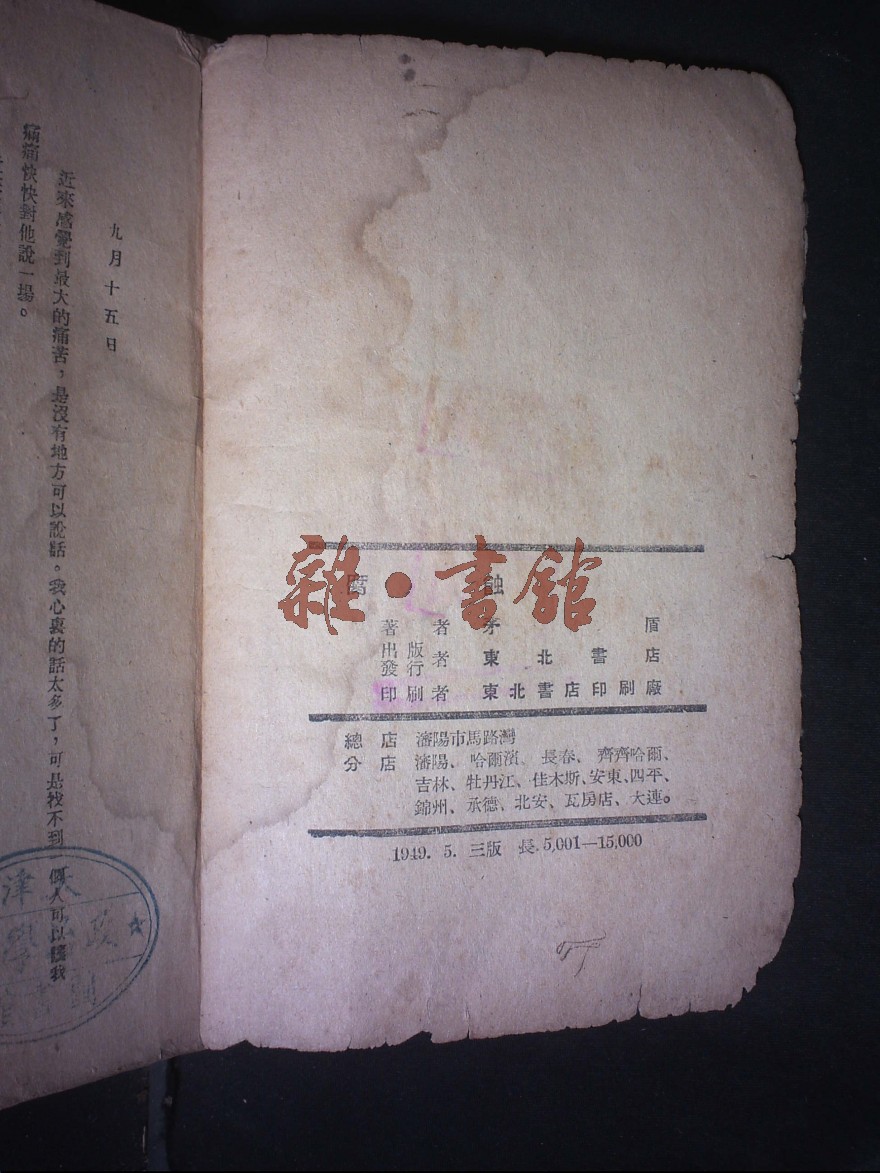 九月十五日
近來感覺到最大的痛苦,是沒有地方可以說話。我心裏的話太多了,可是找不到一個人可以讓我
痛痛快快對他說一場。
雜·書館
腐 蝕
著者 茅盾
出版
發行者 東北書店
印刷者 東北書店印刷廠
總店 瀋陽市馬路灣
分店 瀋陽、哈爾濱、長春、齊齊哈爾、
吉林、牡丹江、佳木斯、安東、四平、
錦州、承德、北安、瓦房店、大連。
1949. 5. 三版 長. 5,001—15,000